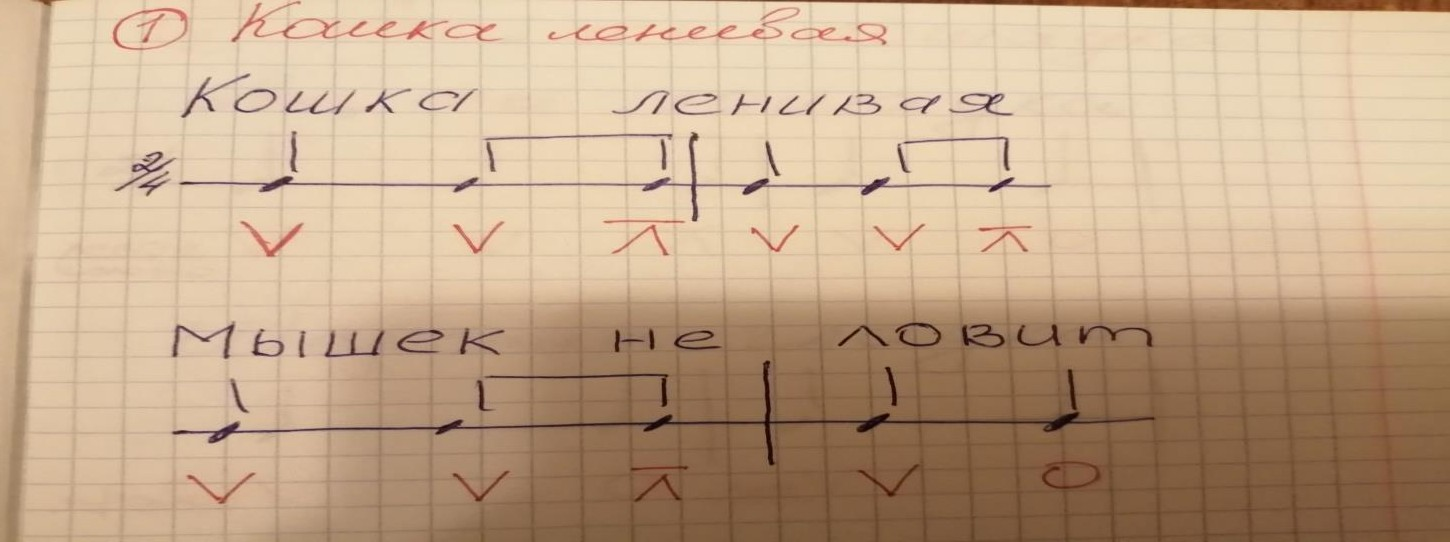 ① Кошка ленивая
Кошка ленивая
2/4
Мышек не ловит